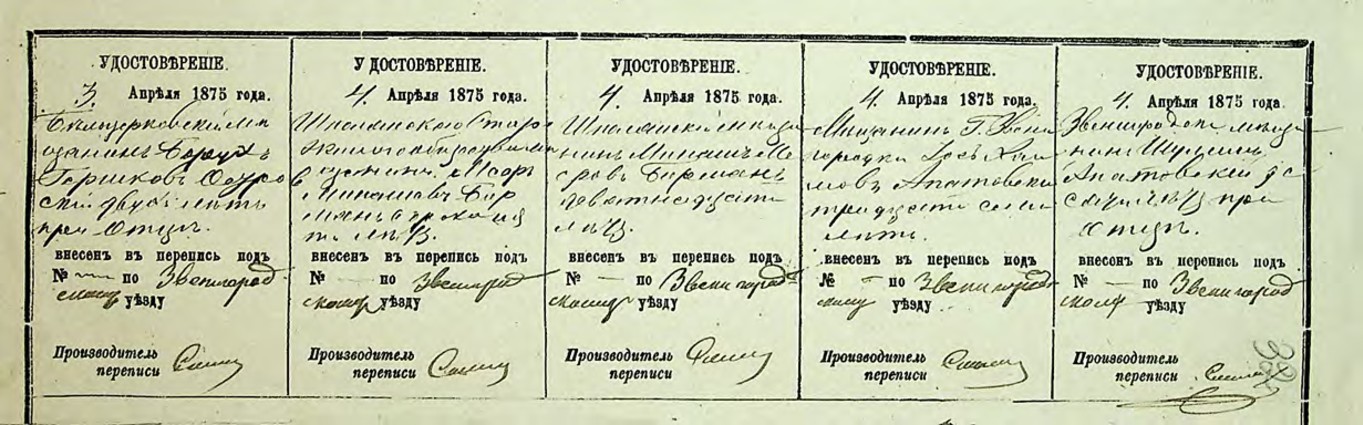 УДОСТОВѢРЕНІЕ.
3. Апрѣля 1875 года.
Бѣлоцерковскій мѣ
щанинъ Борухъ
Гершковъ
двухъ лѣтъ
при Отцѣ.
внесенъ въ перепись подъ
№ — по Звенигород
скому уѣзду
Производитель
переписи
УДОСТОВѢРЕНІЕ.
4. Апрѣля 1875 года.
Шполянскаго
Мсоръ
Минашевъ Бер
манъ сорока
лѣтъ.
внесенъ въ перепись подъ
№ — по Звенигород
скому уѣзду
Производитель
переписи
УДОСТОВѢРЕНІЕ.
4. Апрѣля 1875 года.
Шполянскій мѣща
нинъ Минашъ Мсо
ровъ Берманъ
девятнадцати
лѣтъ.
внесенъ въ перепись подъ
№ — по Звенигород
скому уѣзду
Производитель
переписи
УДОСТОВѢРЕНІЕ.
4. Апрѣля 1875 года.
Мѣщанинъ Г. Звени
городки Іосъ Хаи
мовъ Апатовскій
тридцати семи
лѣтъ.
внесенъ въ перепись подъ
№ — по Звенигород
скому уѣзду
Производитель
переписи
УДОСТОВѢРЕНІЕ.
4. Апрѣля 1875 года.
мѣща
нинъ Шулимъ
Апатовскій де
сяти лѣтъ при
Отцѣ.
внесенъ въ перепись подъ
№ — по Звенигород
скому уѣзду
Производитель
переписи